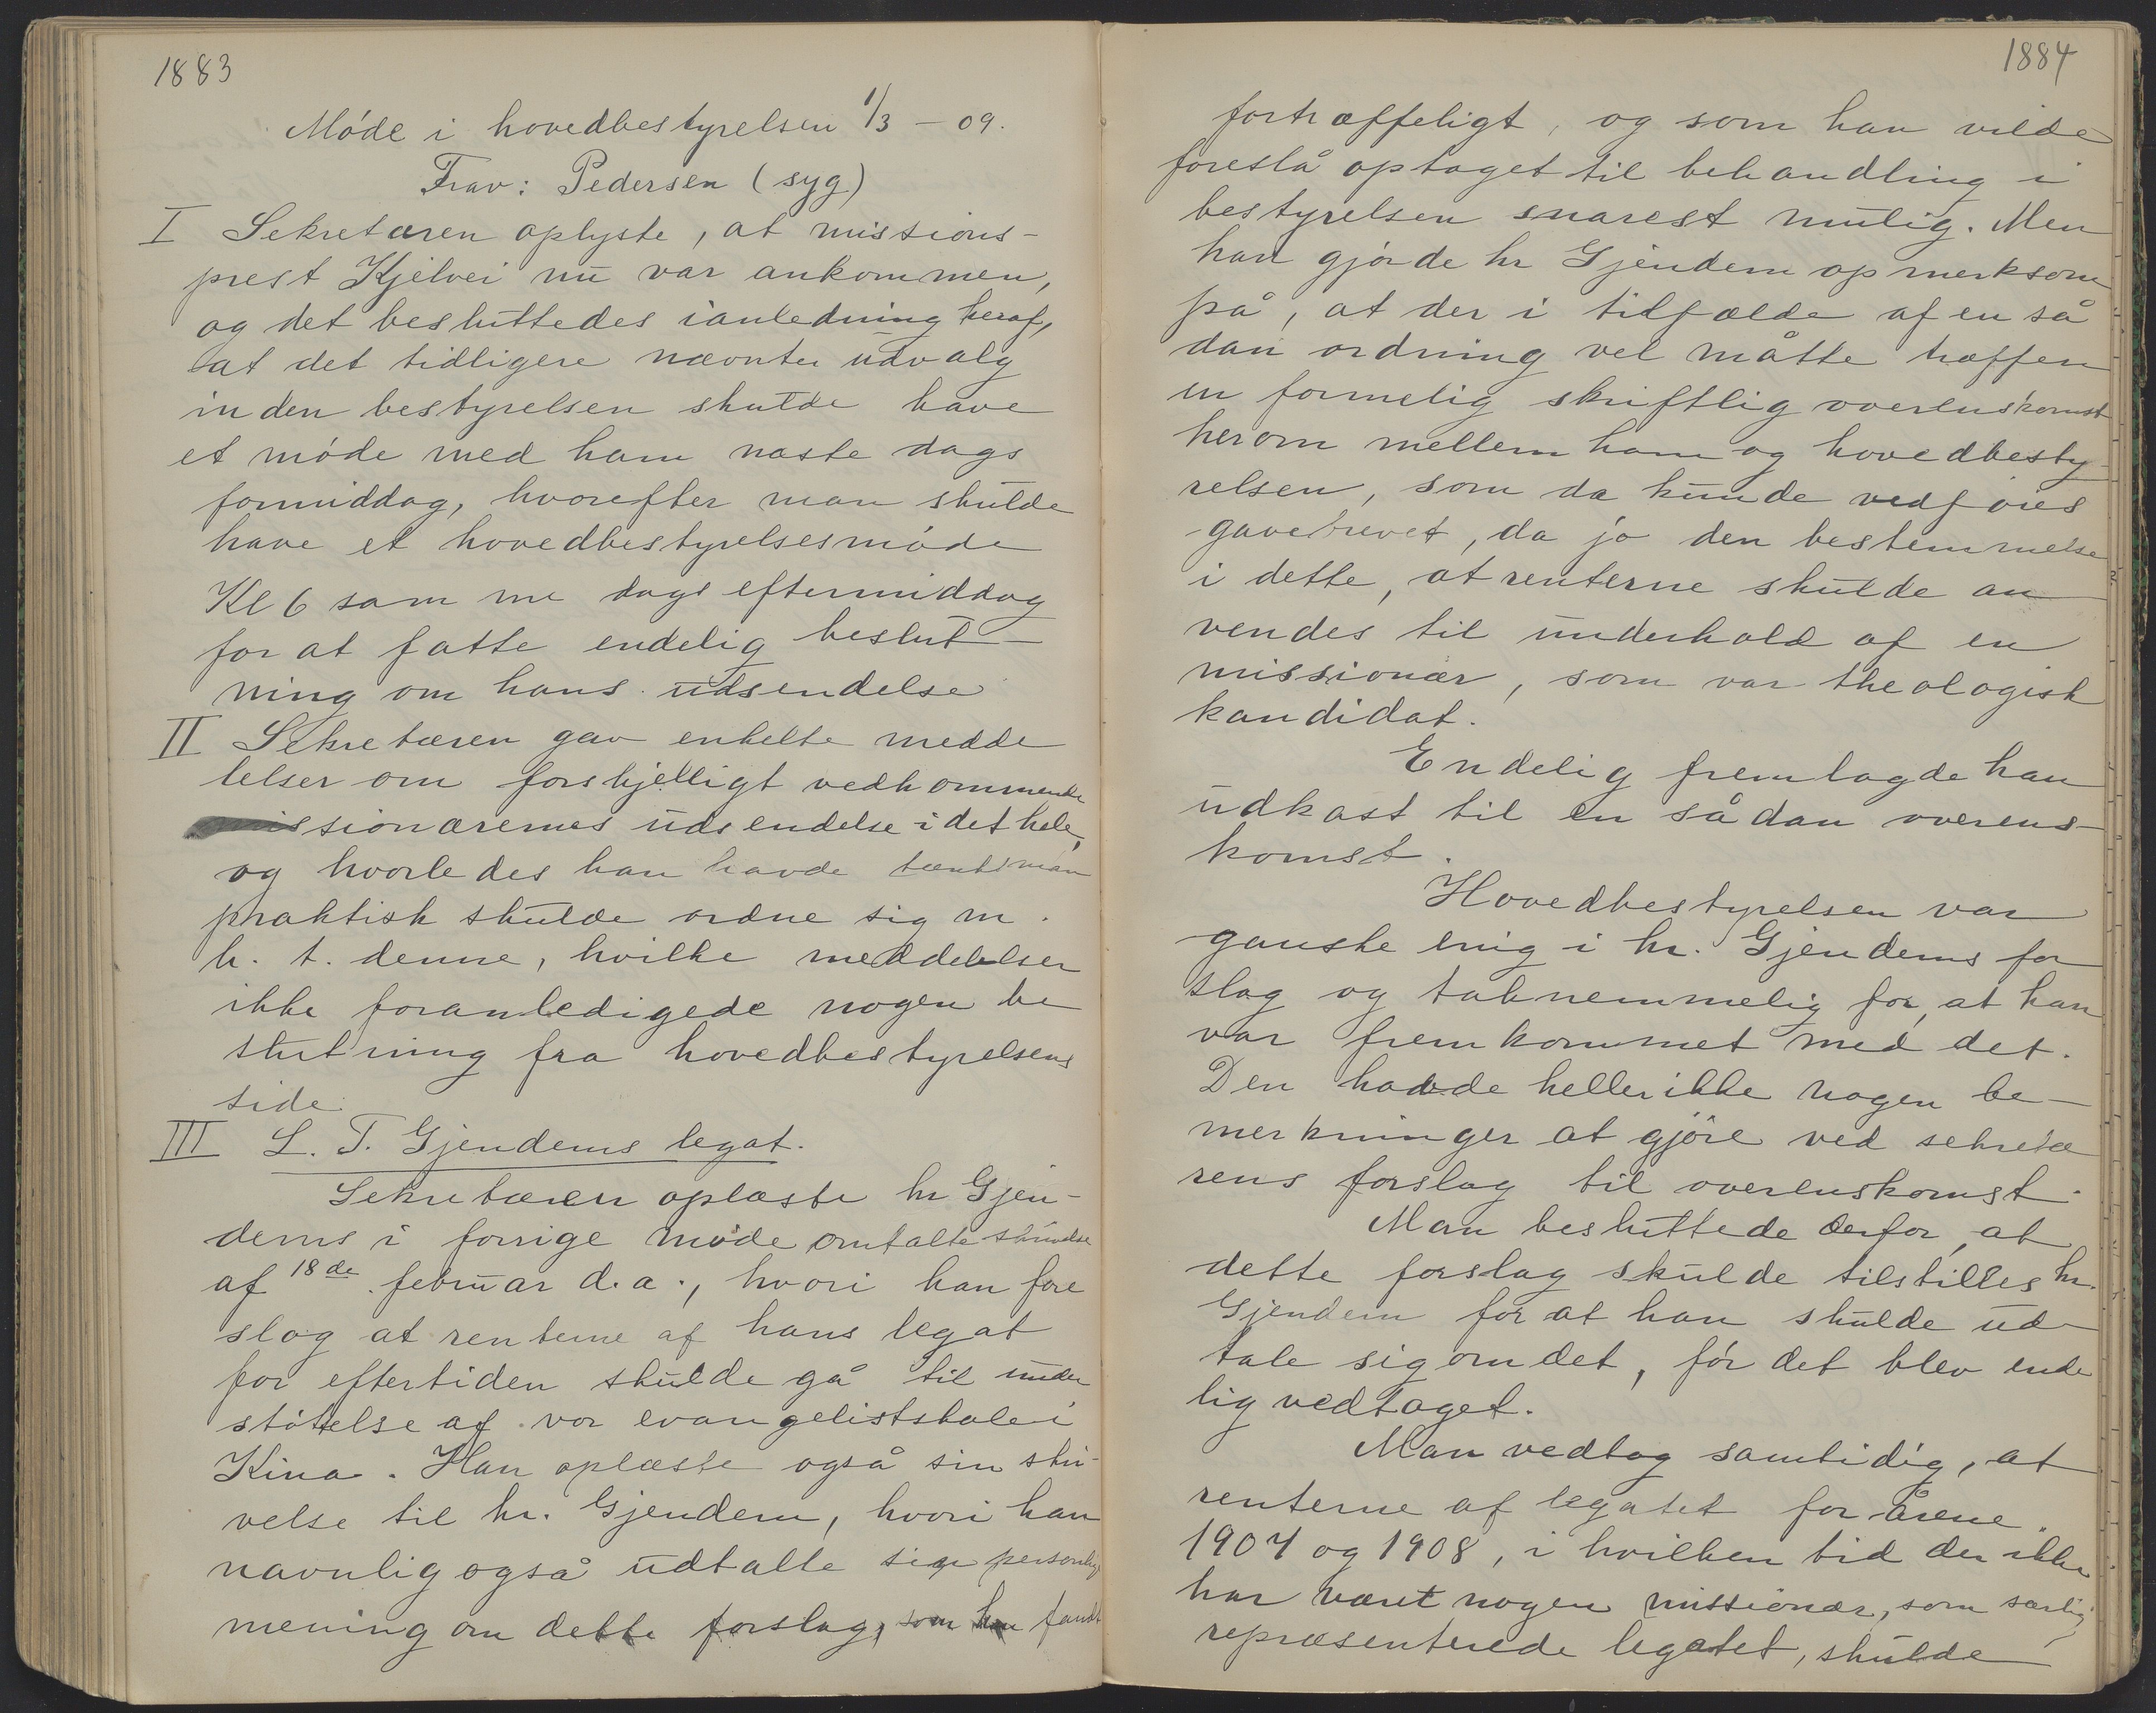 1883
Møde i hovedbestyrelsen 1/3 - 09.
Frav: Pedersen (syg)
I Sekretæren oplyste, at missions-
prest Kjelvei nu var ankommen,
og det besluttedes ianledning heraf,
at det tidligere nævnte udvalg
inden bestyrelsen skulde have
et møde med ham næste dags
formiddag, hvorefter man skulde
have et hovedbestyrelsesmøde
Kl 6 samme dags eftermiddag
for at fatte endelig beslut-
ning om hans udsendelse
II Sekretæren gav enkelte medde
lelser om forskjelligt vedkommende
missionærernes udsendelse i det hele,
og hvorledes han havde tænkt man
praktisk skulde ordne sig m.
h. t. denne, hvilke meddelelser
ikke foranledigede nogen be
slutning fra hovedbestyrelsens
side.
III L. T. Gjendems legat.
Sekretæren oplæste hr Gjen-
dems i forrige møde omtalte skrivelse
af 18de februar d. a., hvori han fore
slog at renterne af hans legat
for eftertiden skulde gå til under
støttelse af vor evangelistskole i
Kina. Han oplæste også sin skri-
velse til hr. Gjendem, hvori han
navnlig også udtalte sin personlige
mening om dette forslag, som han fandt
1884
fortræffeligt, og som han vilde
foreslå optaget til behandling i
bestyrelsen snarest mulig. Men
han gjorde hr Gjendem opmerksom
på, at der i tilfælde af en så
dan ordning vel måtte træffes
en formelig skriftlig overenskomst
herom mellem ham og hovedbesty
relsen, som da kunde vedføies
gavebrevet, da jo den bestemmelse
i dette, at renterne skulde an
vendes til underhold af en
missionær, som var theologisk
kandidat.
Endelig fremlagde han
udkast til en sådan overens-
komst.
Hovedbestyrelsen var
ganske enig i hr. Gjendems for
slag og taknemmelig for, at han
var fremkommet med det.
Den havde heller ikke nogen be-
merkninger at gjøre ved sekretæ
rens forslag til overenskomst.
Man besluttede derfor, at
dette forslag skulde tilstilles hr.
Gjendem for at han skulde ud-
tale sig om det, før det blev ende
lig vedtaget.
Man vedtog samtidig, at
renterne af legatet for årene
1907 og 1908, i hvilken tid der ikke
har været nogen missionær, som særlig
repræsenterede legatet, skulde